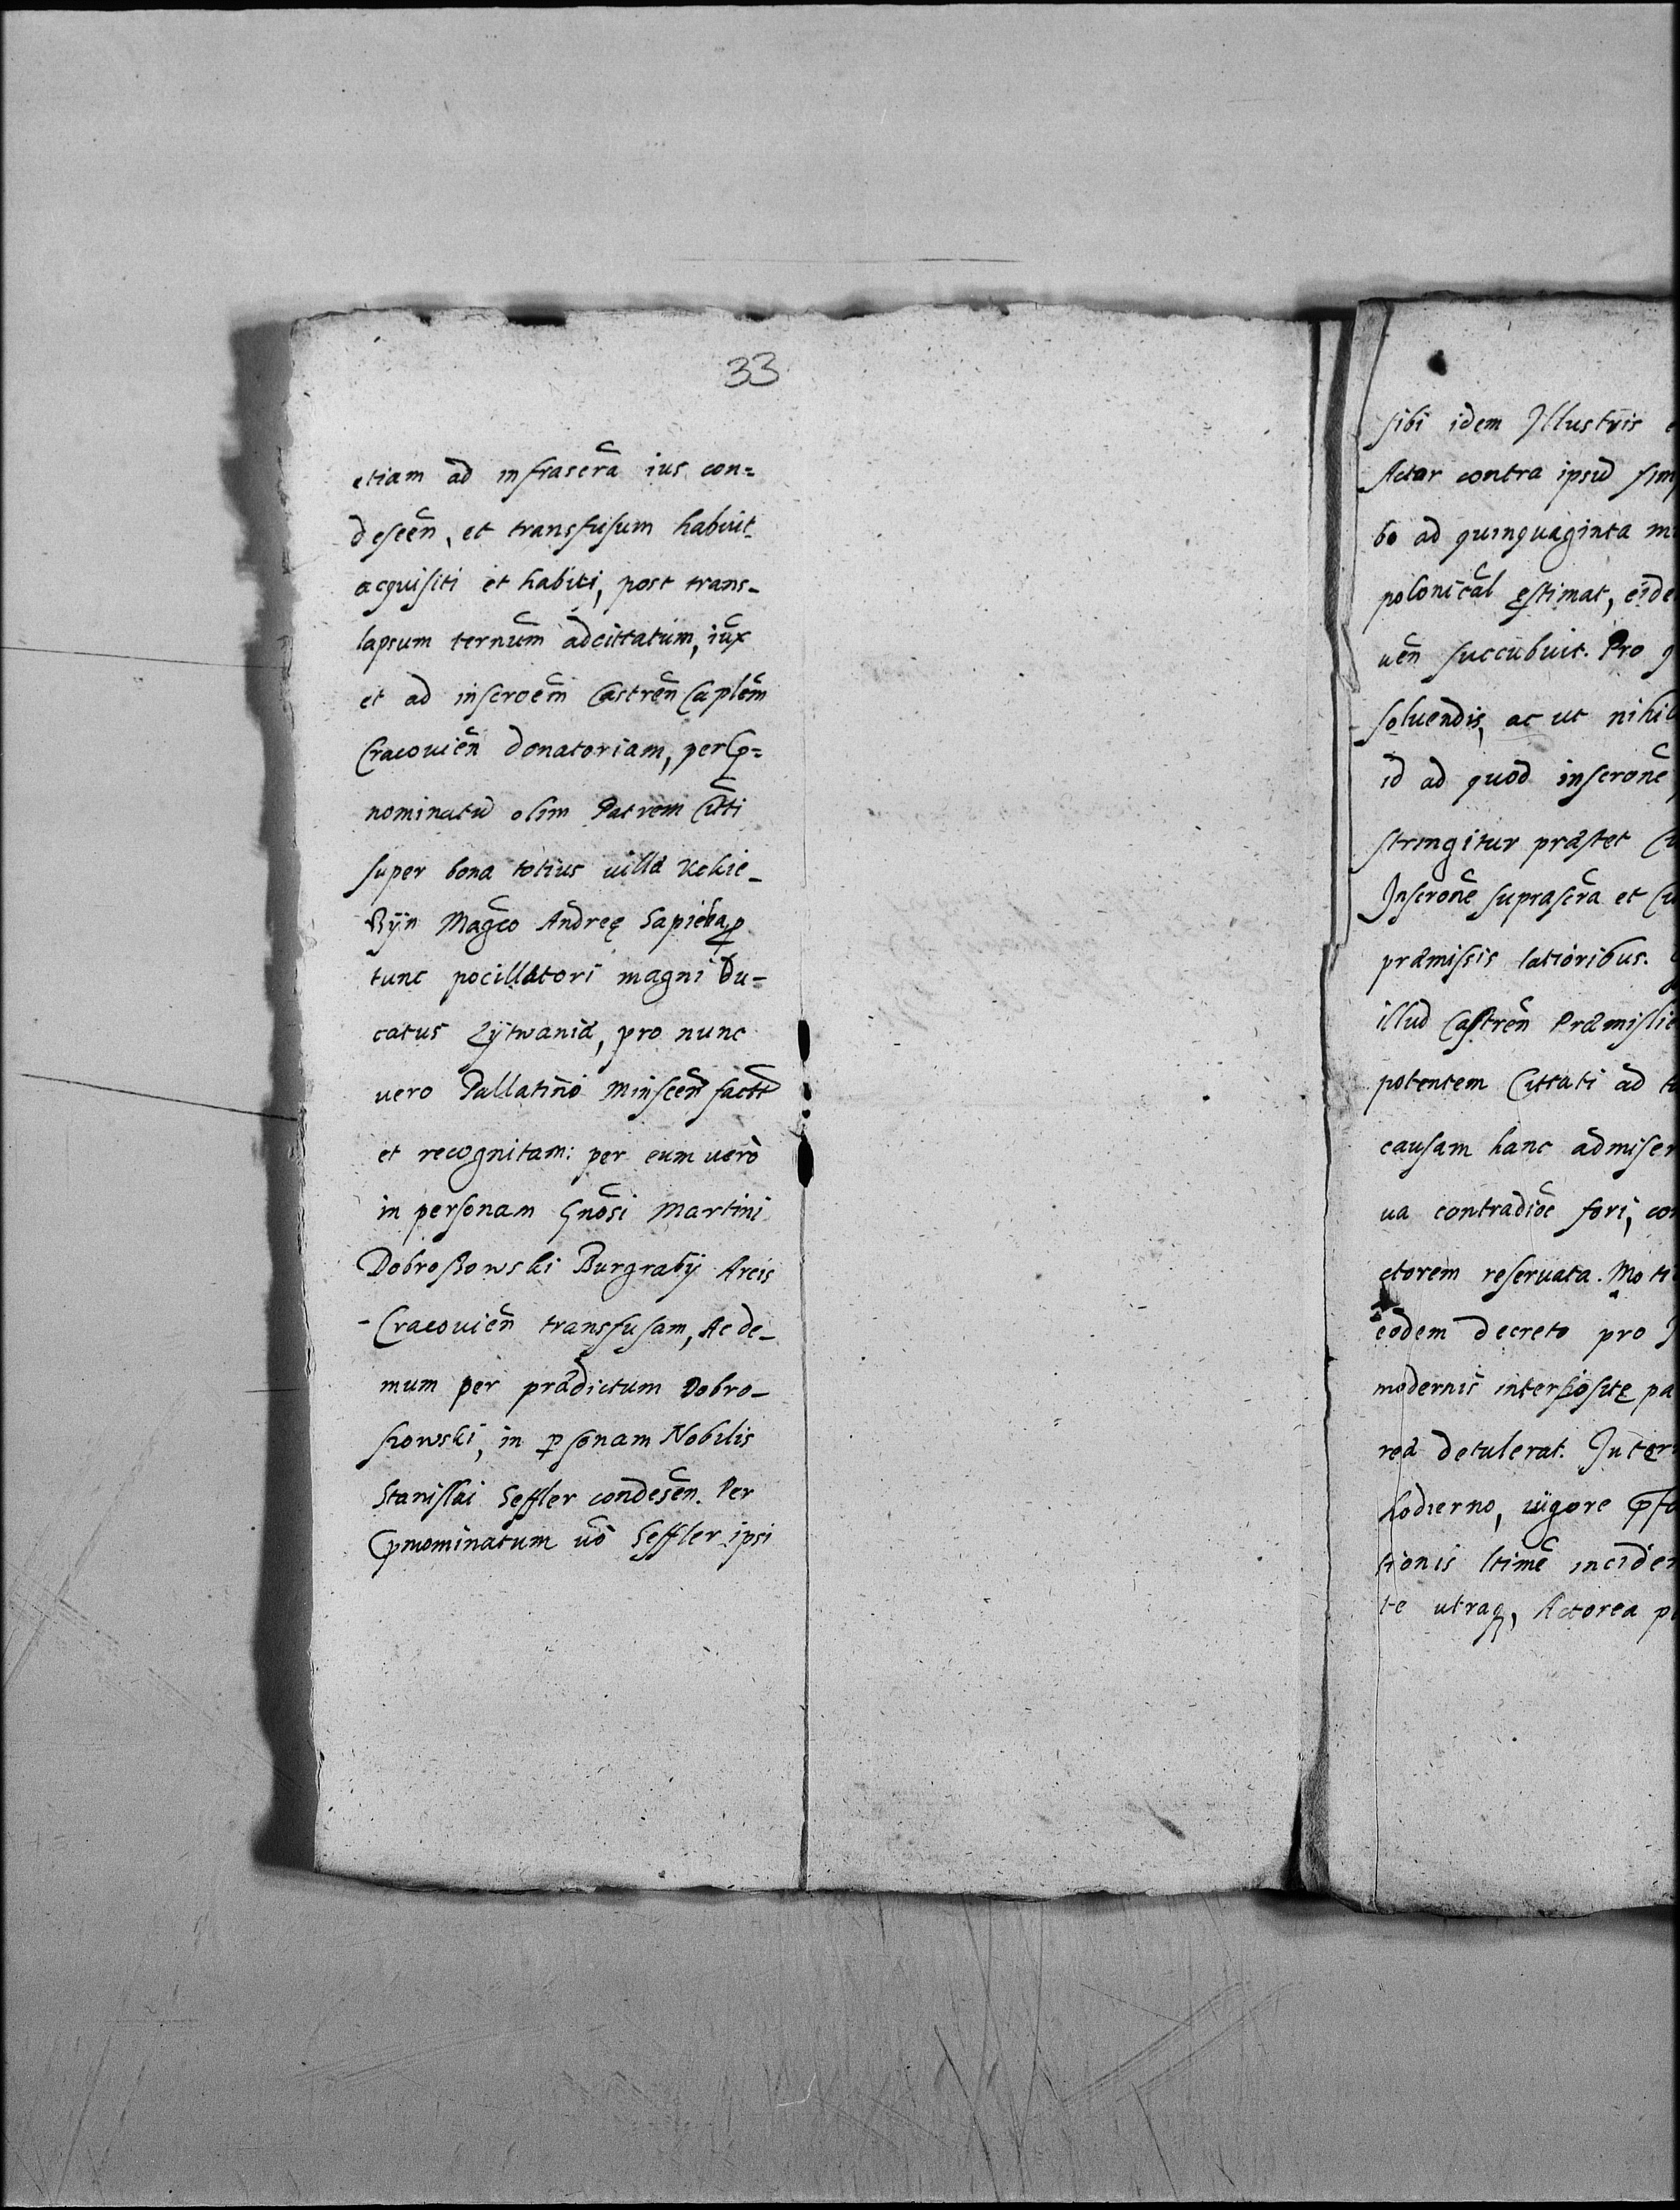 33
etiam ad infrascrã ius con=
descẽn, et transfusum habuit
acquisiti et habiti, post trans-
lapsum ternũm adcittatum, iũx
et ad inscroẽm Castrẽn Caplẽm
Cracouiẽn donatoriam, per
nominatũ olim Patrem Citti
super bona totius uillæ
Magĉo Andreę Sapieha
tunc pocillatori magni Du=
catus Lÿtwaniæ, pro nunc
uero Pallatino Minscẽn
et recognitam: per eum uerò
in personam Gnõsi Martini
Dobroßowski Burgrabÿ Arcis
Cracouiẽn transfusam, Ac de-
mum per prædictum Dobro-
szowski, in ꝑsonam Nobilis
Stanislai Seffler condesẽn. Per
nominatum uõ Seffler ipsi
sibi idem Illustris
Actor contra ipsũ
bo ad quinquaginta
polonicãl ęstimat,
uẽn succubuit. Pro
soluendis, ac ut
id ad quod inscronẽ
stringitur præstet
Inscronẽ suprascrã et
præmissis latioribus.
illud Castrẽn
potentem Cittati ad
causam hanc
ua contradiõe fori,
ctorem reseruata.
eodem decreto pro
modernis interpositę
rea detulerat.
hodierno, uigore
tionis ltimẽ
te utraq, Actorea